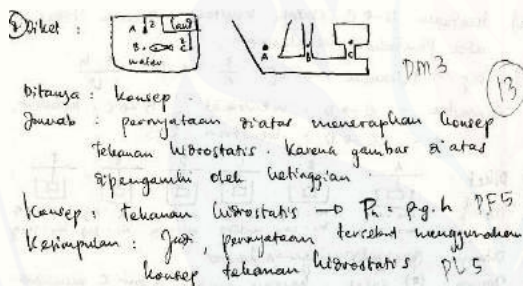 Diket :
A 2
B
water
A B C
DM3
13
Ditanya : konsep
Jawab : pernyataan diatas menerapkan konsep
tekanan hidrostatis. Karena gambar diatas
dipengaruhi oleh ketinggian
Konsep : tekanan hidrostatis → Ph = ρg.h PF5
Kesimpulan : Jadi, pernyataan tersebut menggunakan
konsep tekanan hidrostatis PL5